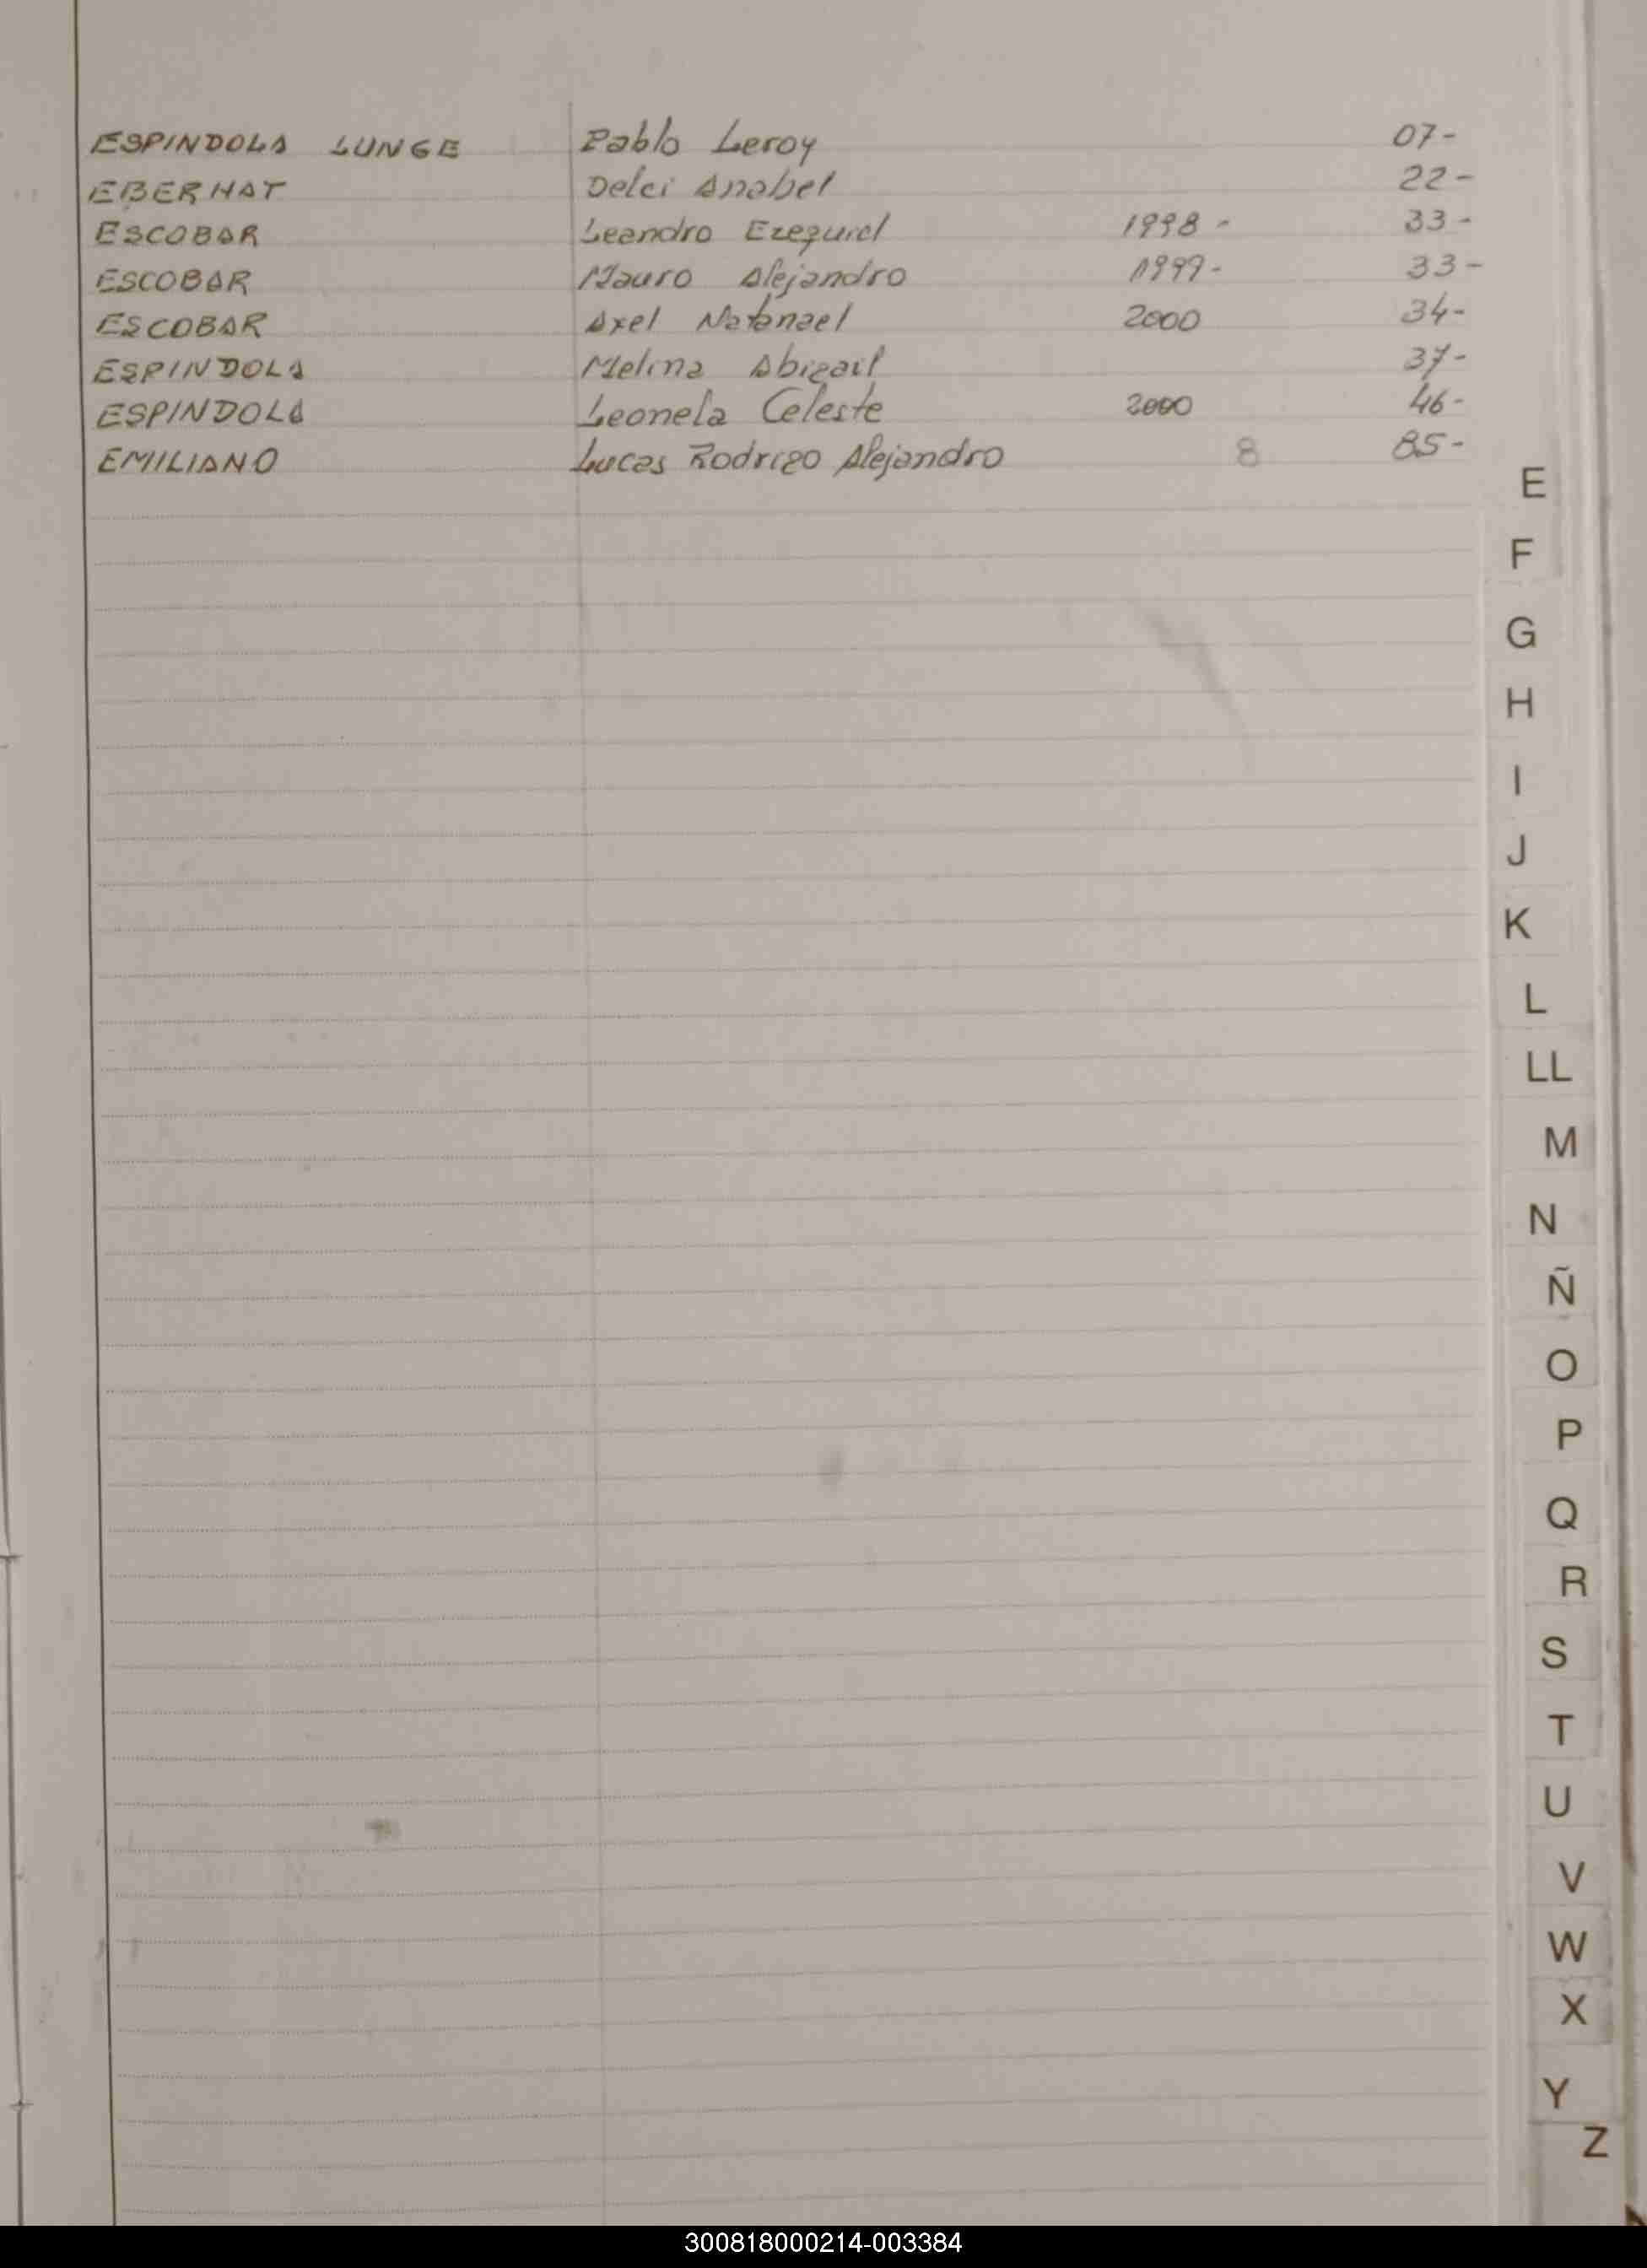 ESPINDOLA LUNGE Pablo Leroy 07-
EBERHAT Delci Anabel 22-
ESCOBAR Leandro Ezequiel 1998- 33-
ESCOBAR Mauro Alejandro 1999- 33-
ESCOBAR Axel Natanael 2000 34-
ESPINDOLA Melina Abigail 37-
ESPINDOLA Leonela Celeste 2000 46-
EMILIANO Lucas Rodrigo Alejandro 8 85-
E
F
G
H
I
J
K
L
LL
M
N
Ñ
O
P
Q
R
S
T
U
V
W
X
Y
Z
300818000214-003384